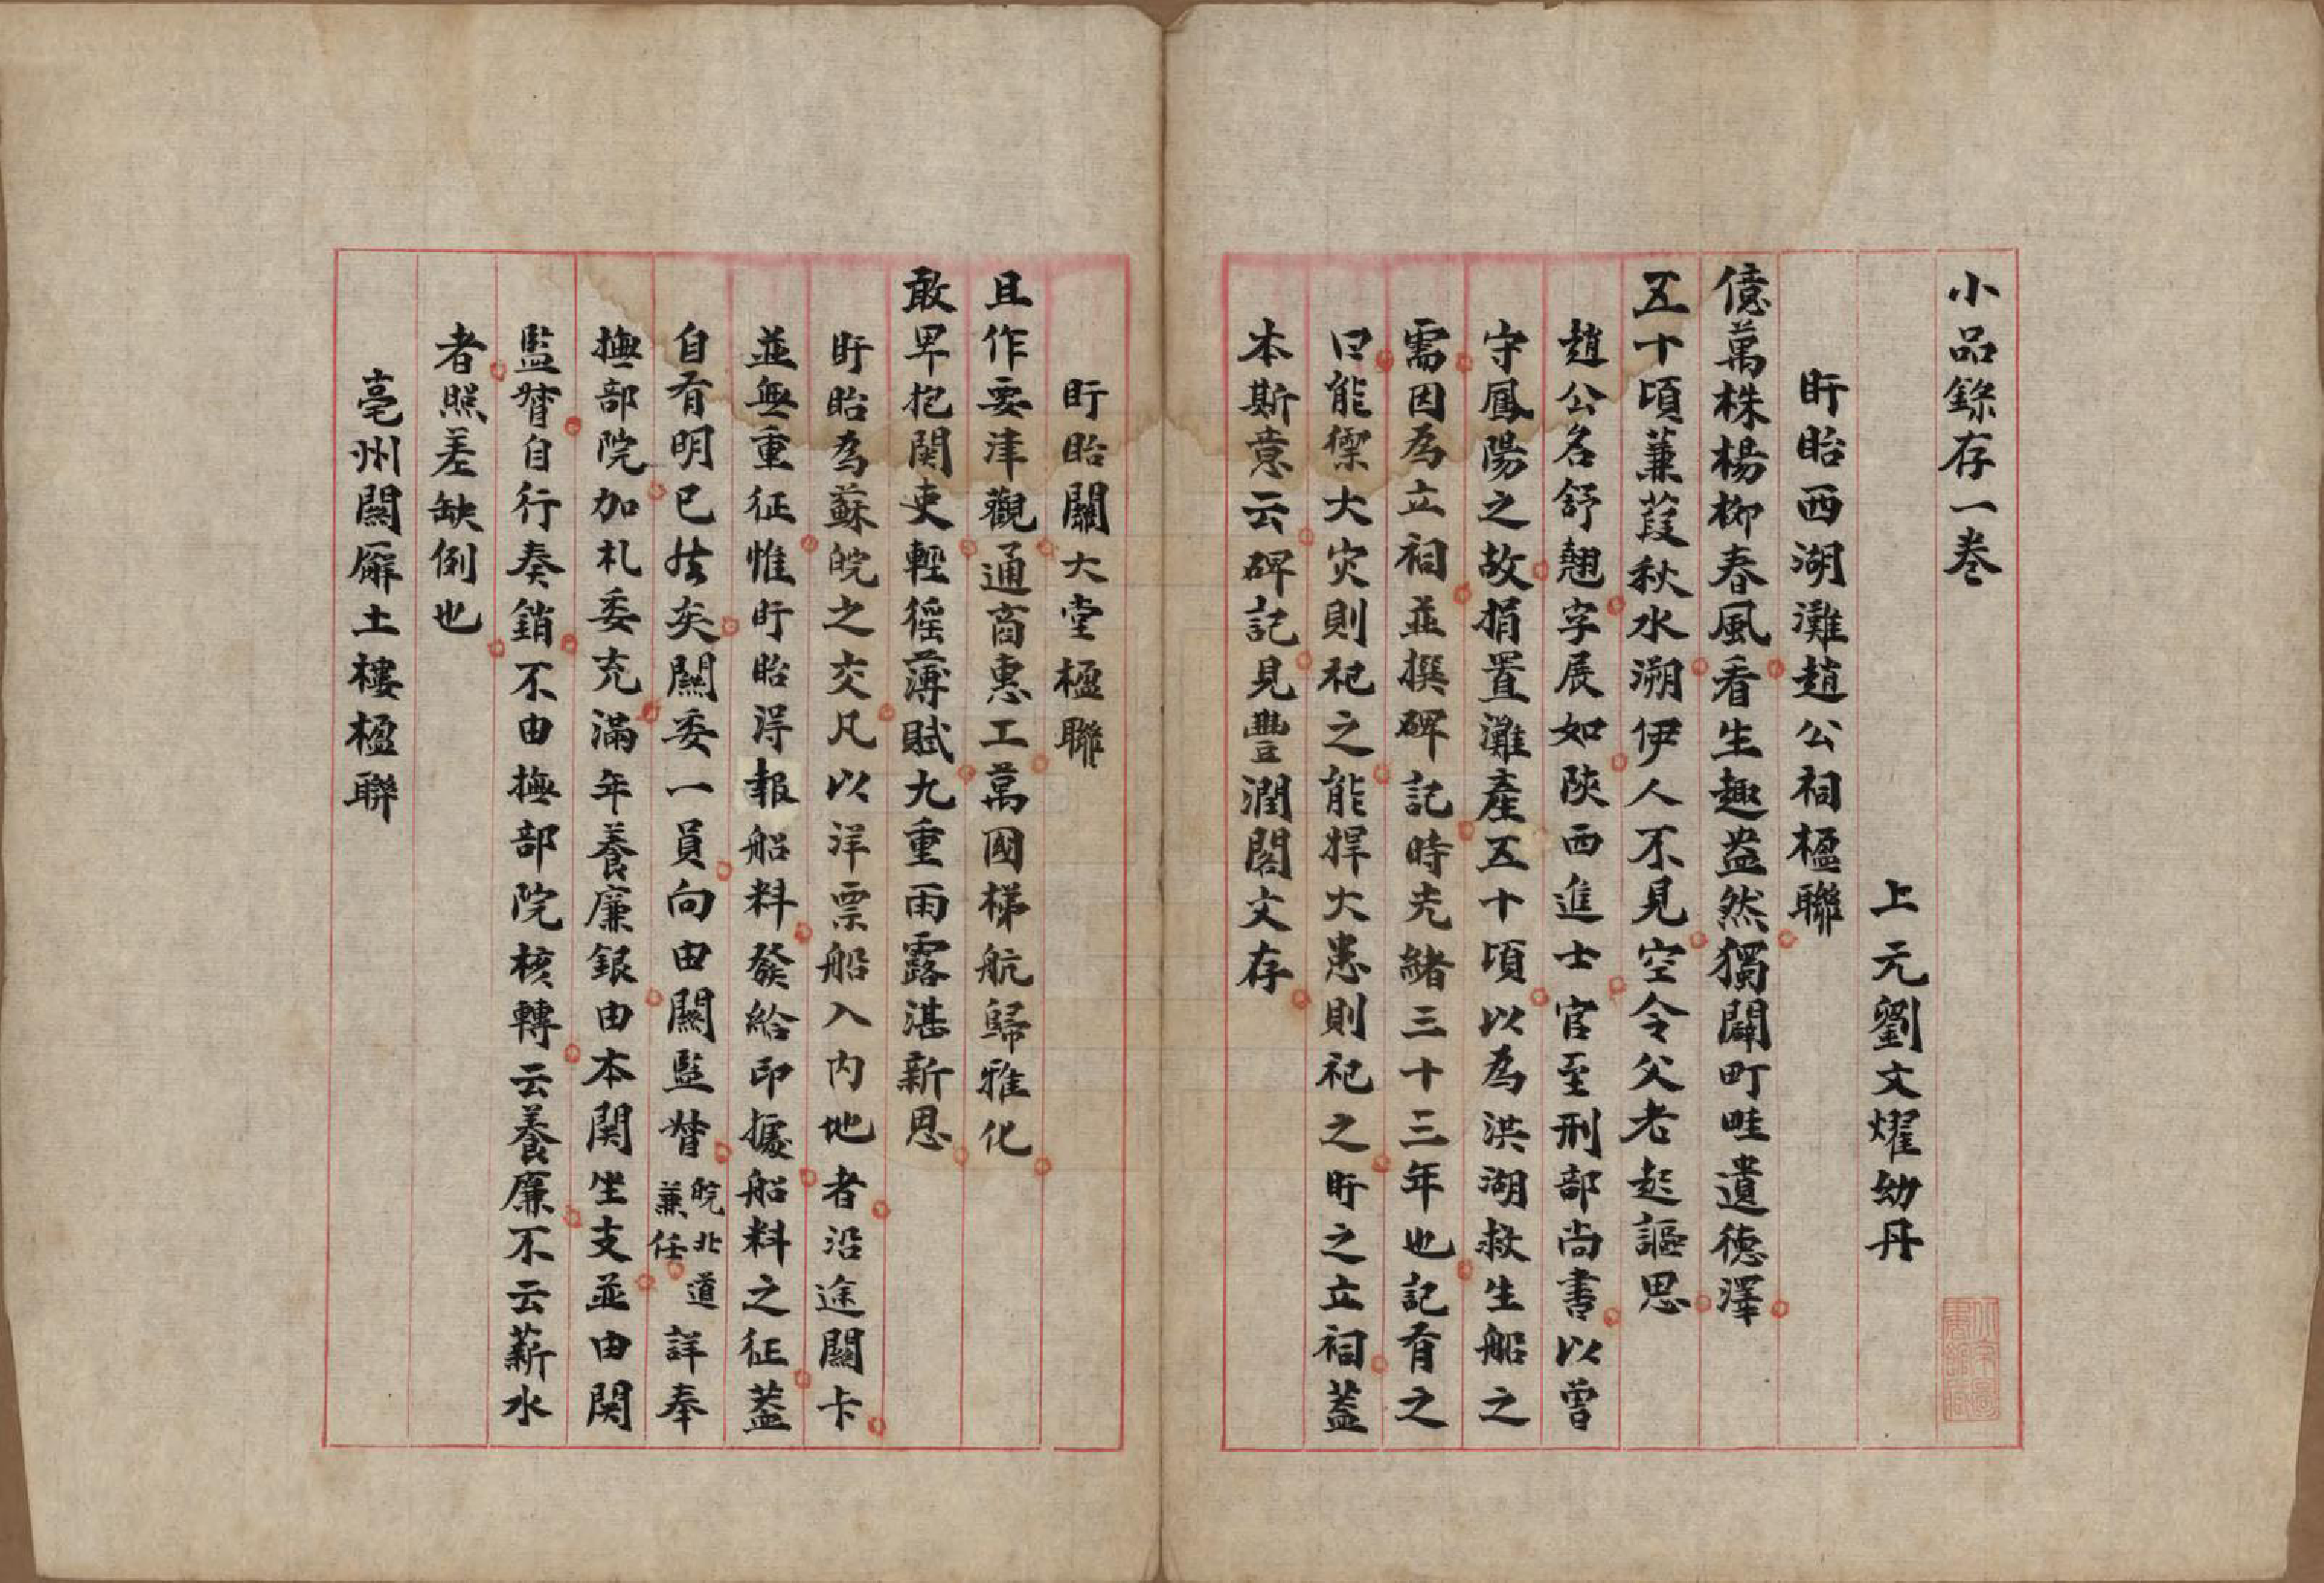 小品錄存一卷
上元劉文燿幼丹
盱眙西湖灘趙公祠楹聯
億萬株楊柳春風看生趣盎然獨闢町畦遺德澤
五十頃蒹葭秋水溯伊人不見空令父老起謳思
趙公名舒翹字展如陝西進士官至刑部尚書以曾
守鳳陽之故捐置灘產五十頃以為洪湖救生船之
需因為立祠並撰碑記時光緒三十三年也記有之
曰能禦大災則祀之能捍大患則祀之盱之立祠蓋
本斯意云碑記見豐潤閣文存
盱眙關大堂楹聯
且作要津觀通商惠工萬國梯航歸雅化
敢卑抱関吏輕徭薄賦九重雨露湛新恩
盱眙為蘇皖之交凡以洋票船入內地者沿途關卡
並無重征惟盱眙得報船料發給印據船料之征蓋
自有明已然矣關委一員向由關監督皖北道兼任詳奉
撫部院加札委充滿年養廉銀由本関坐支並由関
監督自行奏銷不由撫部院核轉云養廉不云薪水
者照差缺例也
亳州關廨土樓楹聯